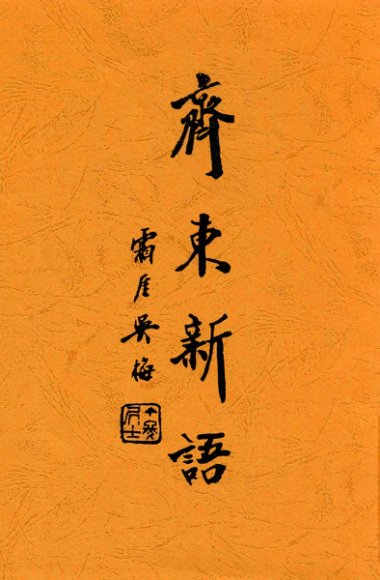 齊東新語
霜厓吳梅